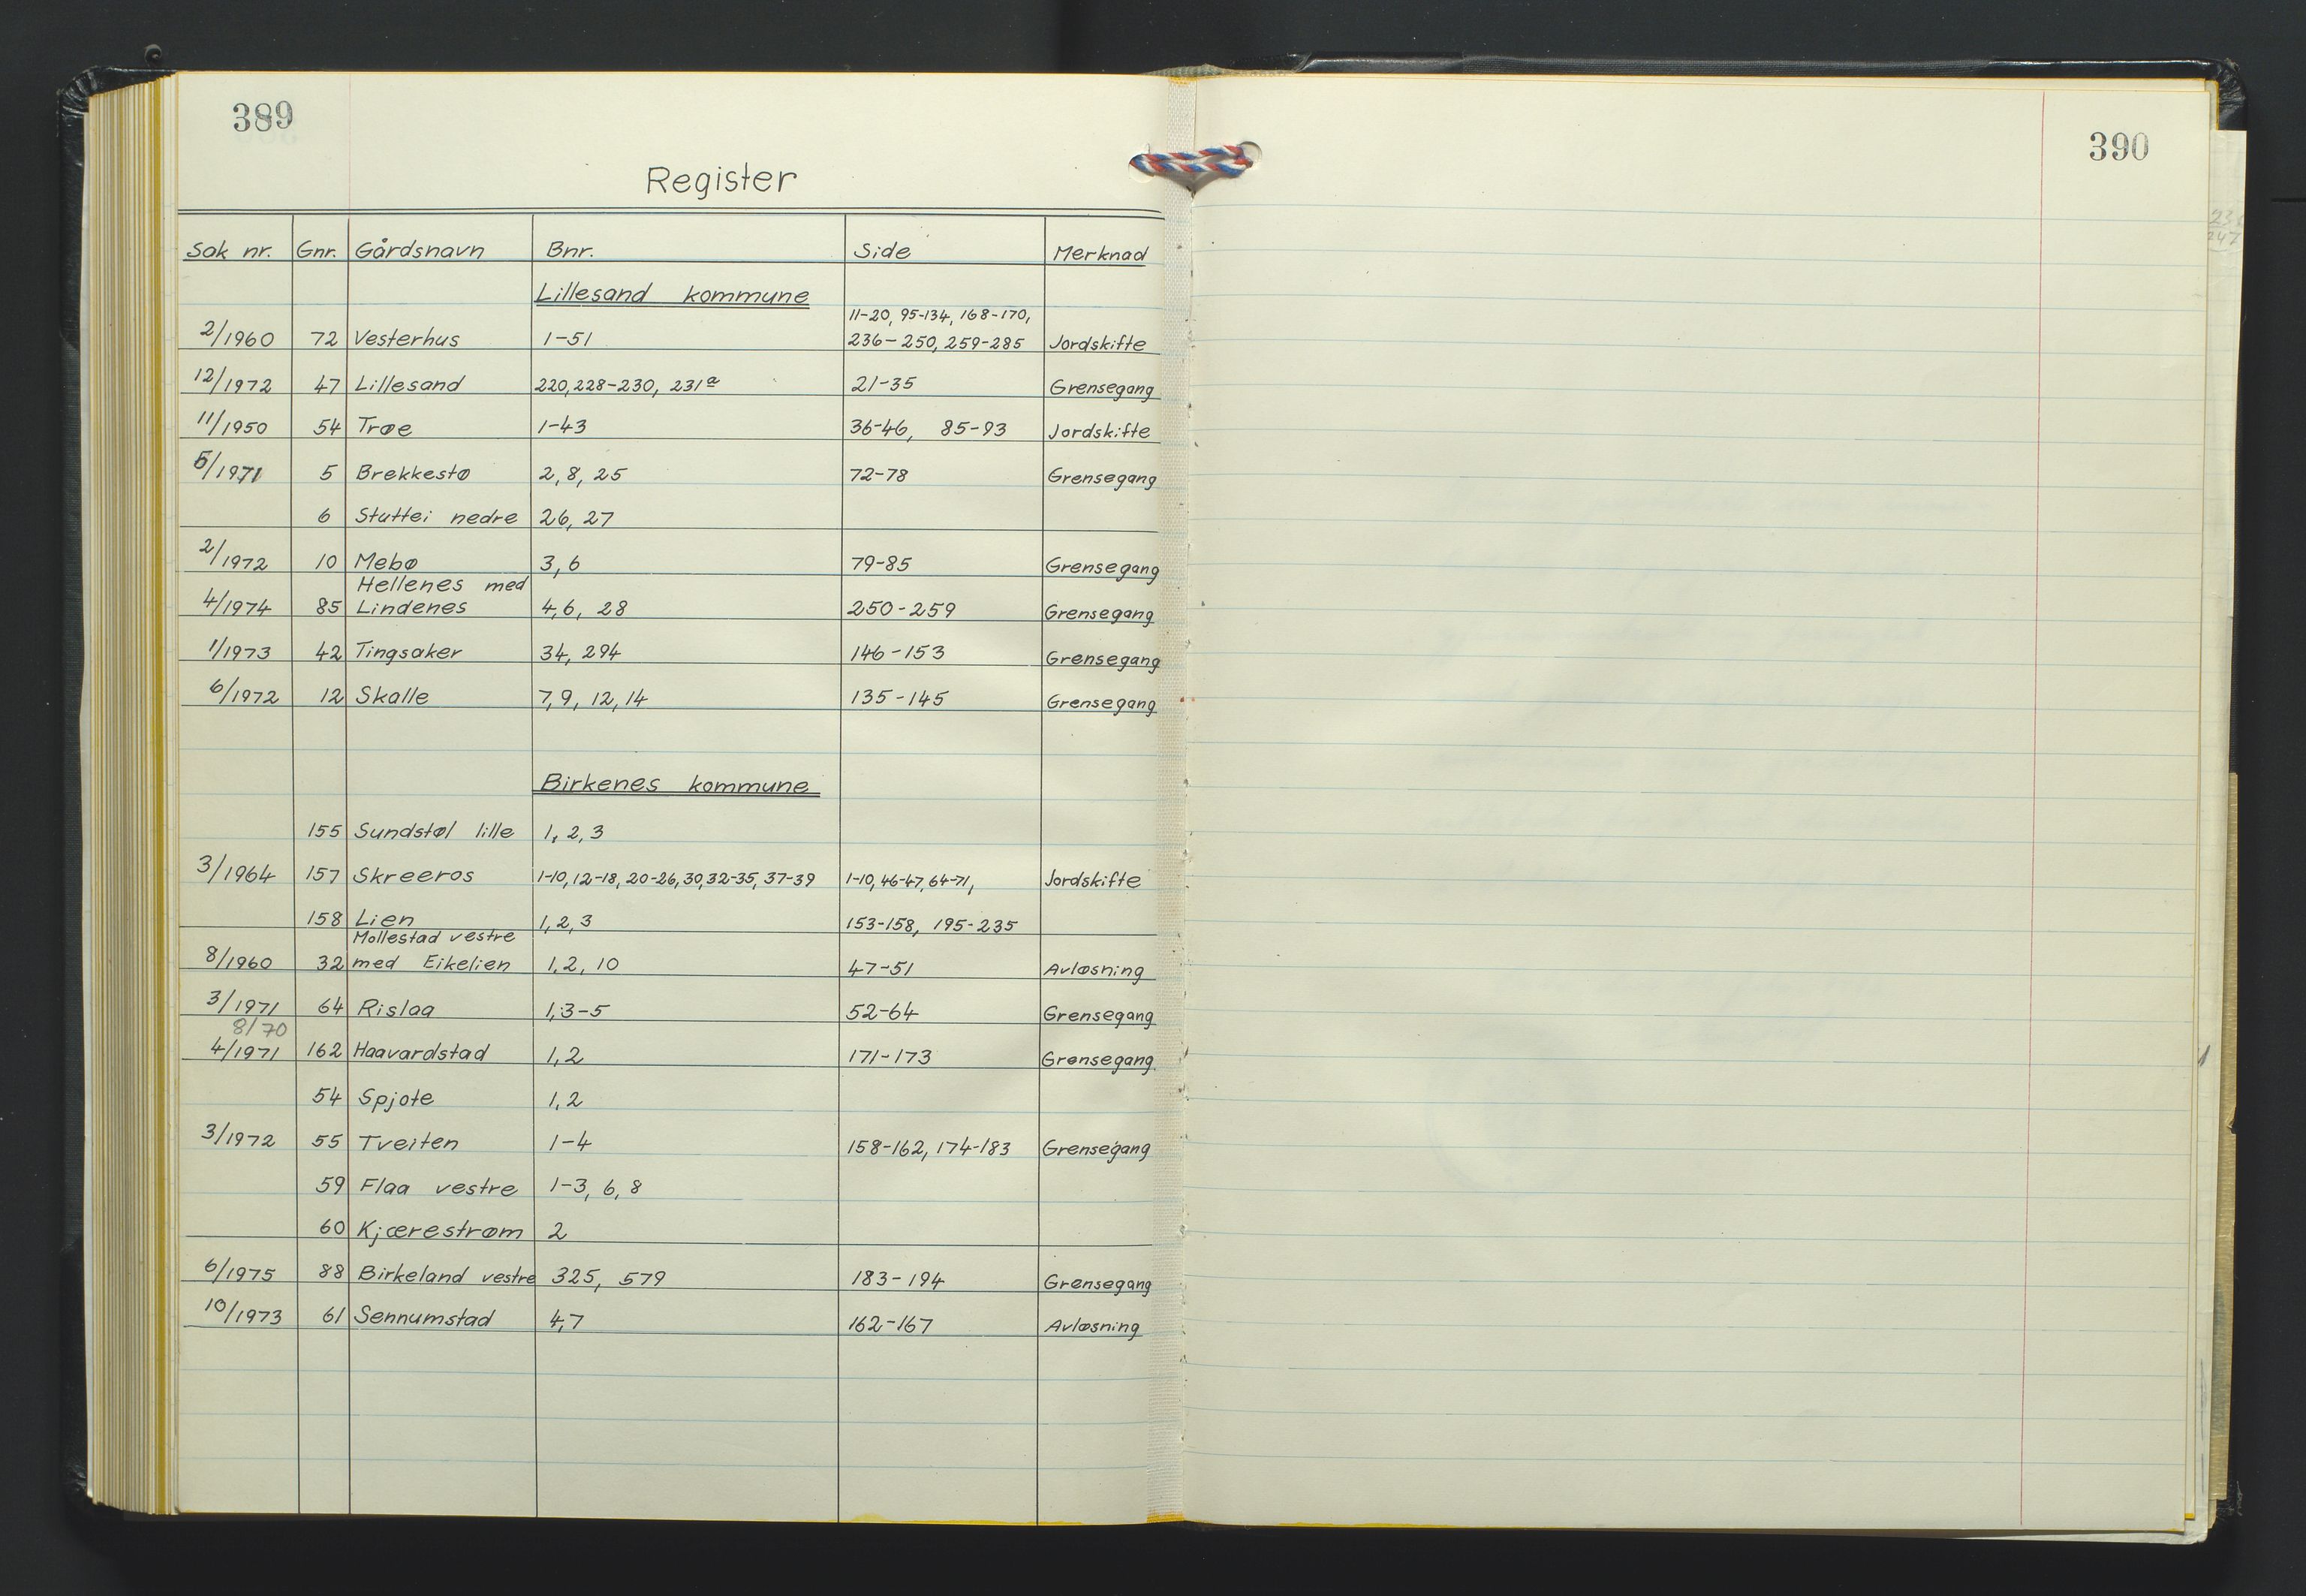 389
Register
Sak nr. Gnr. Gårdsnavn Bnr. Side Merknad
Lillesand kommune
11-20, 95-134, 168-170,
2/1960 72 Vesterhus 1-51 236-250, 259-285 Jordskifte
12/1972 47 Lillesand 220, 228-230, 231a 21-35 Grensegang
11/1950 54 Trøe 1-43 36-46, 85-93 Jordskifte
5/1971 5 Brekkestø 2, 8, 25 72-78 Grensegang
6 Stuttei nedre 26, 27
2/1972 10 Mebø 3, 6 79-85 Grensegang
Hellenes med
4/1974 85 Lindenes 4, 6, 28 250-259 Grensegang
1/1973 42 Tingsaker 34, 294 146-153 Grensegang
6/1972 12 Skalle 7, 9, 12, 14 135-145 Grensegang
Birkenes kommune
155 Sundstøl lille 1, 2, 3
3/1964 157 Skreeros 1-10, 12-18, 20-26, 30, 32-35, 37-39 1-10, 46-47, 64-71, Jordskifte
158 Lien 1, 2, 3 153-158, 195-235
Mollestad vestre
8/1960 32 med Eikelien 1, 2, 10 47-51 Avløsning
3/1971 64 Rislaa 1, 3-5 52-64 Grensegang
8/70
4/1971 162 Haavardstad 1, 2 171-173 Grensegang
54 Spjote 1, 2
3/1972 55 Tveiten 1-4 158-162, 174-183 Grensegang
59 Flaa vestre 1-3, 6, 8
60 Kjærestrøm 2
6/1975 88 Birkeland vestre 325, 579 183-194 Grensegang
10/1973 61 Sennumstad 4, 7 162-167 Avløsning
390
247